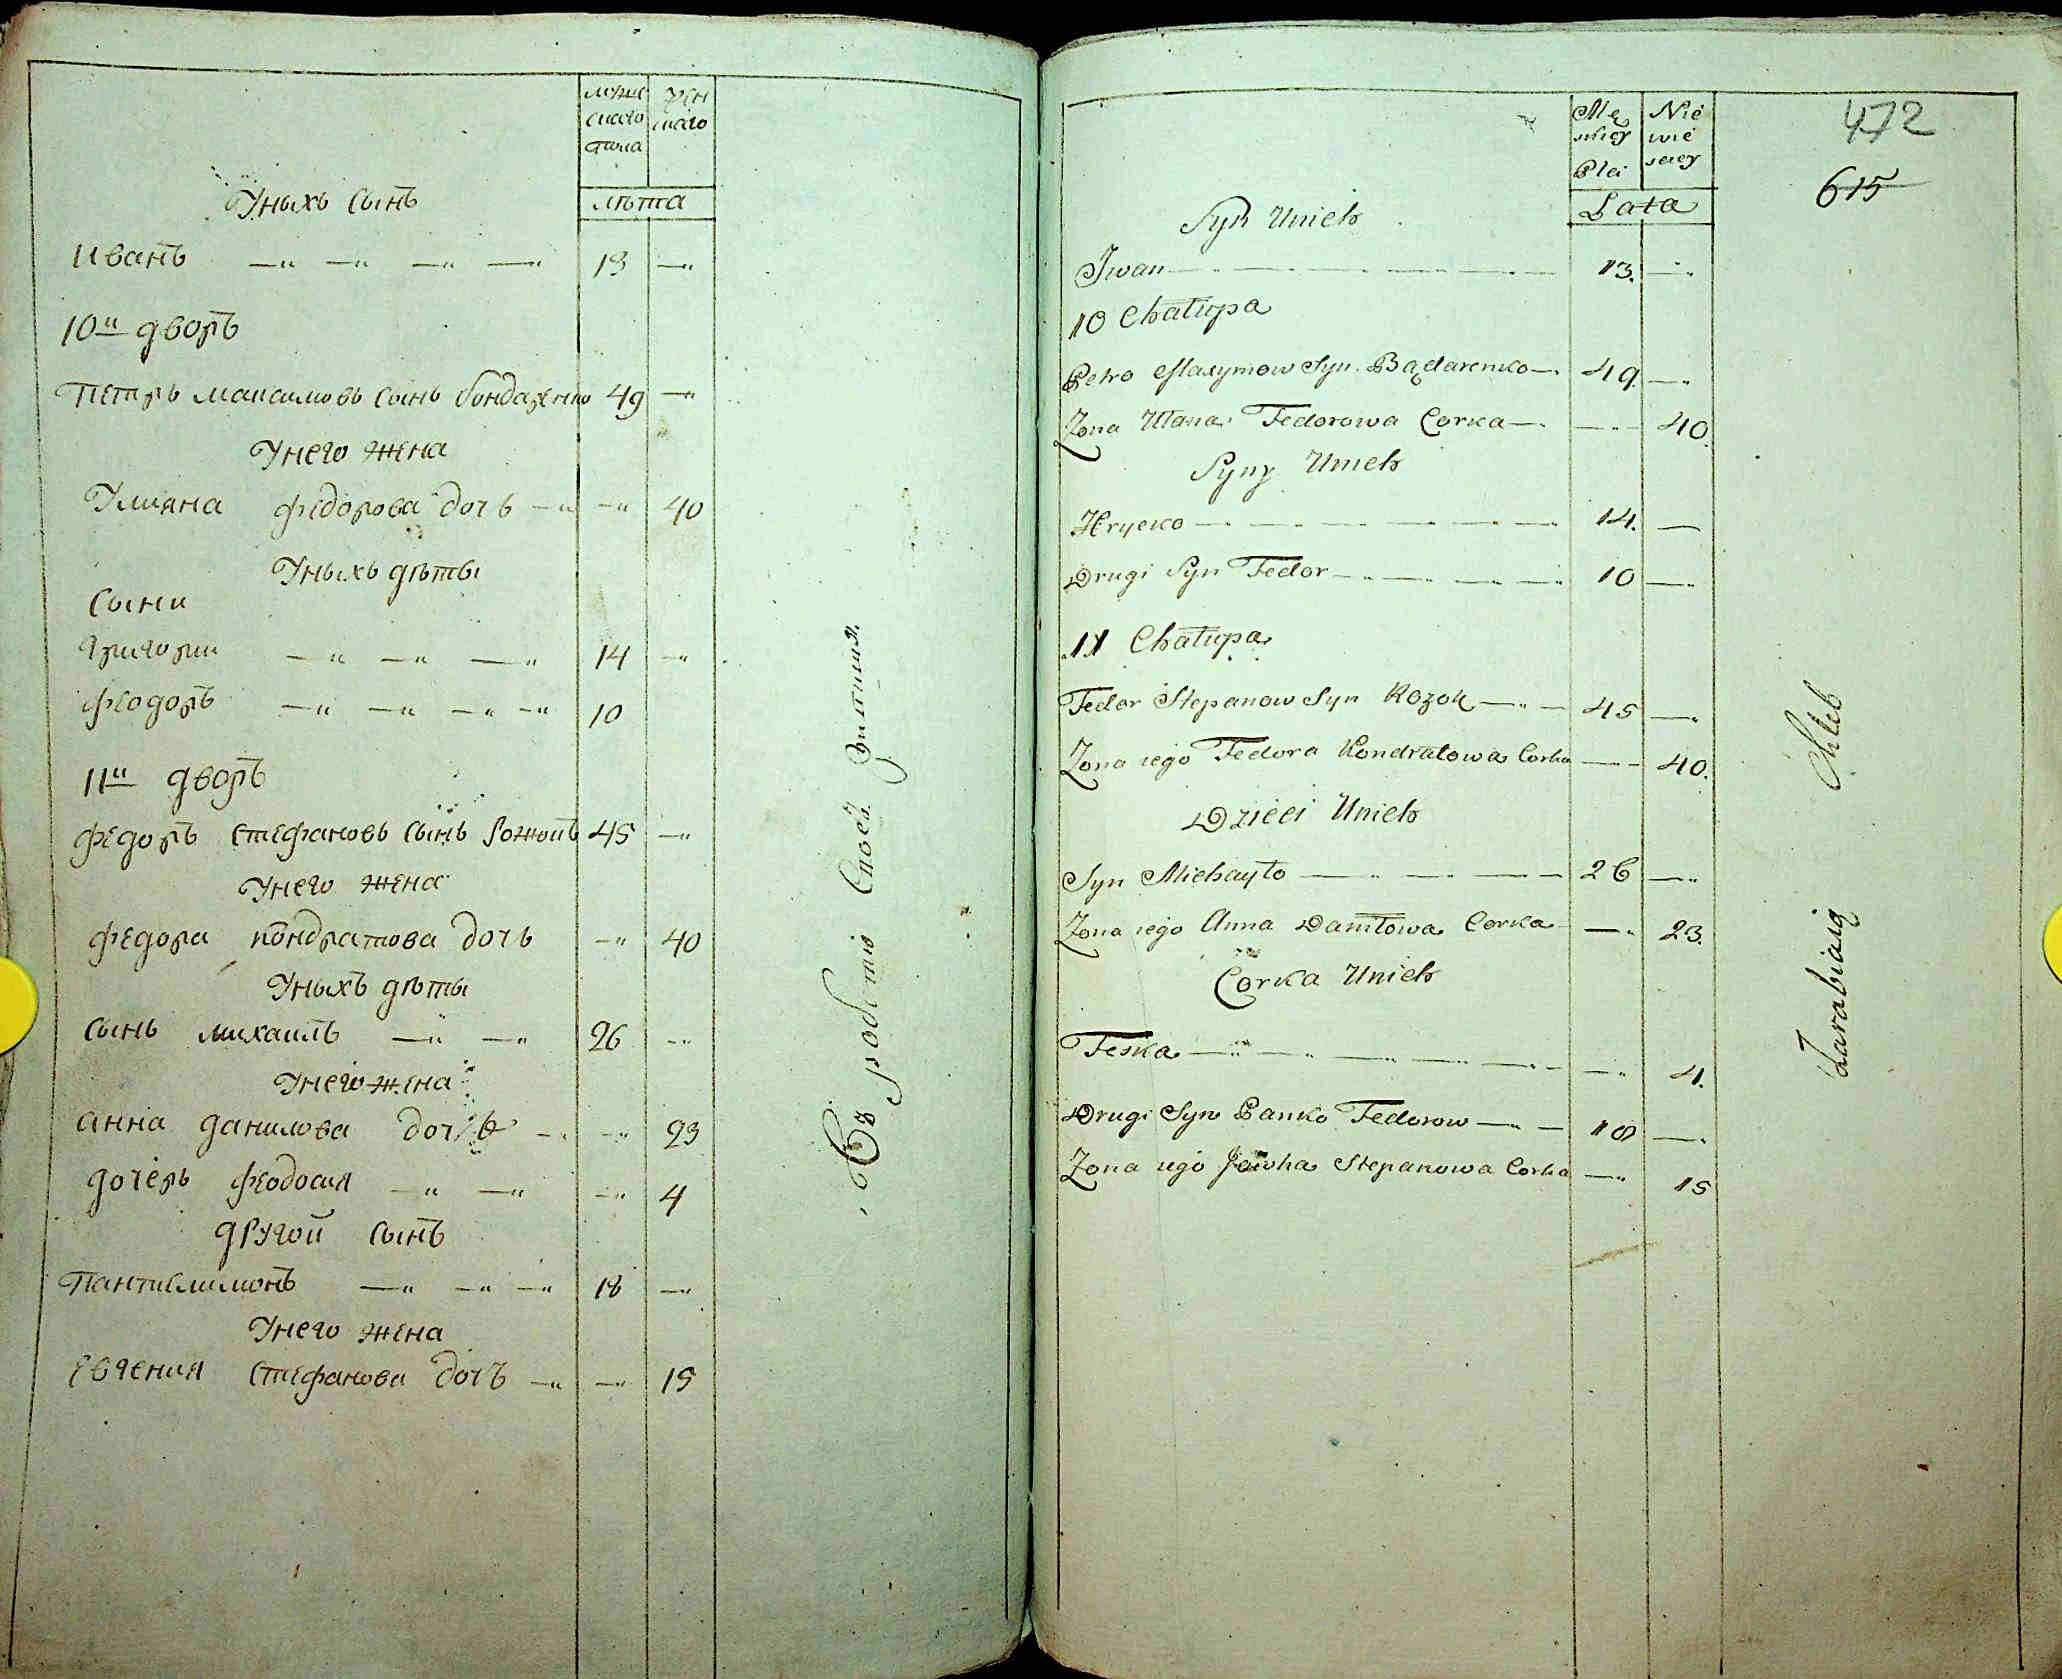 мужескаго пола
женскаго
лѣта
Уныхъ сынъ
иванъ 13
10й дворъ
Петръ максимовъ сынъ бондаренко 49
Унего жена
Улияна федорова дочь 40
Уныхъ дѣты
сыни
григории 14
феодоръ 10
11й дворъ
федоръ стефановъ сынъ 45
Унего жена
федора кондратова дочь 40
Уныхъ дѣты
сынъ михаилъ 26
Унего жена
анна данилова дочь 23
дочерь феодосия 4
другой сынъ
Пантилимонъ 18
Унего жена
Евгения стефанова дочъ 15
работы своей
472
615
Męskiey Płci
Niewieściey
Lata
Syn Unich
Jwan 13.
10 Chałupa
Petro Maxymow Syn Bądarenko 49
Zona Ulana Fedorowa Corka 40.
Syny Unich
Hrycko 14.
Drugi Syn Fedor 10
11 Chałupa
Fedor Stepanow Syn Kozok 45
Zona iego Fedora Kondratowa Corka 40.
Dzieci Unich
Syn Michayło 26
Zona iego Anna Daniłowa Corka 23.
Corka Unich
Feska 4.
Drugi Syn Panko Fedorow 18
Zona iego Jawha Stepanowa Corka 15
Zarabiaią Chleb